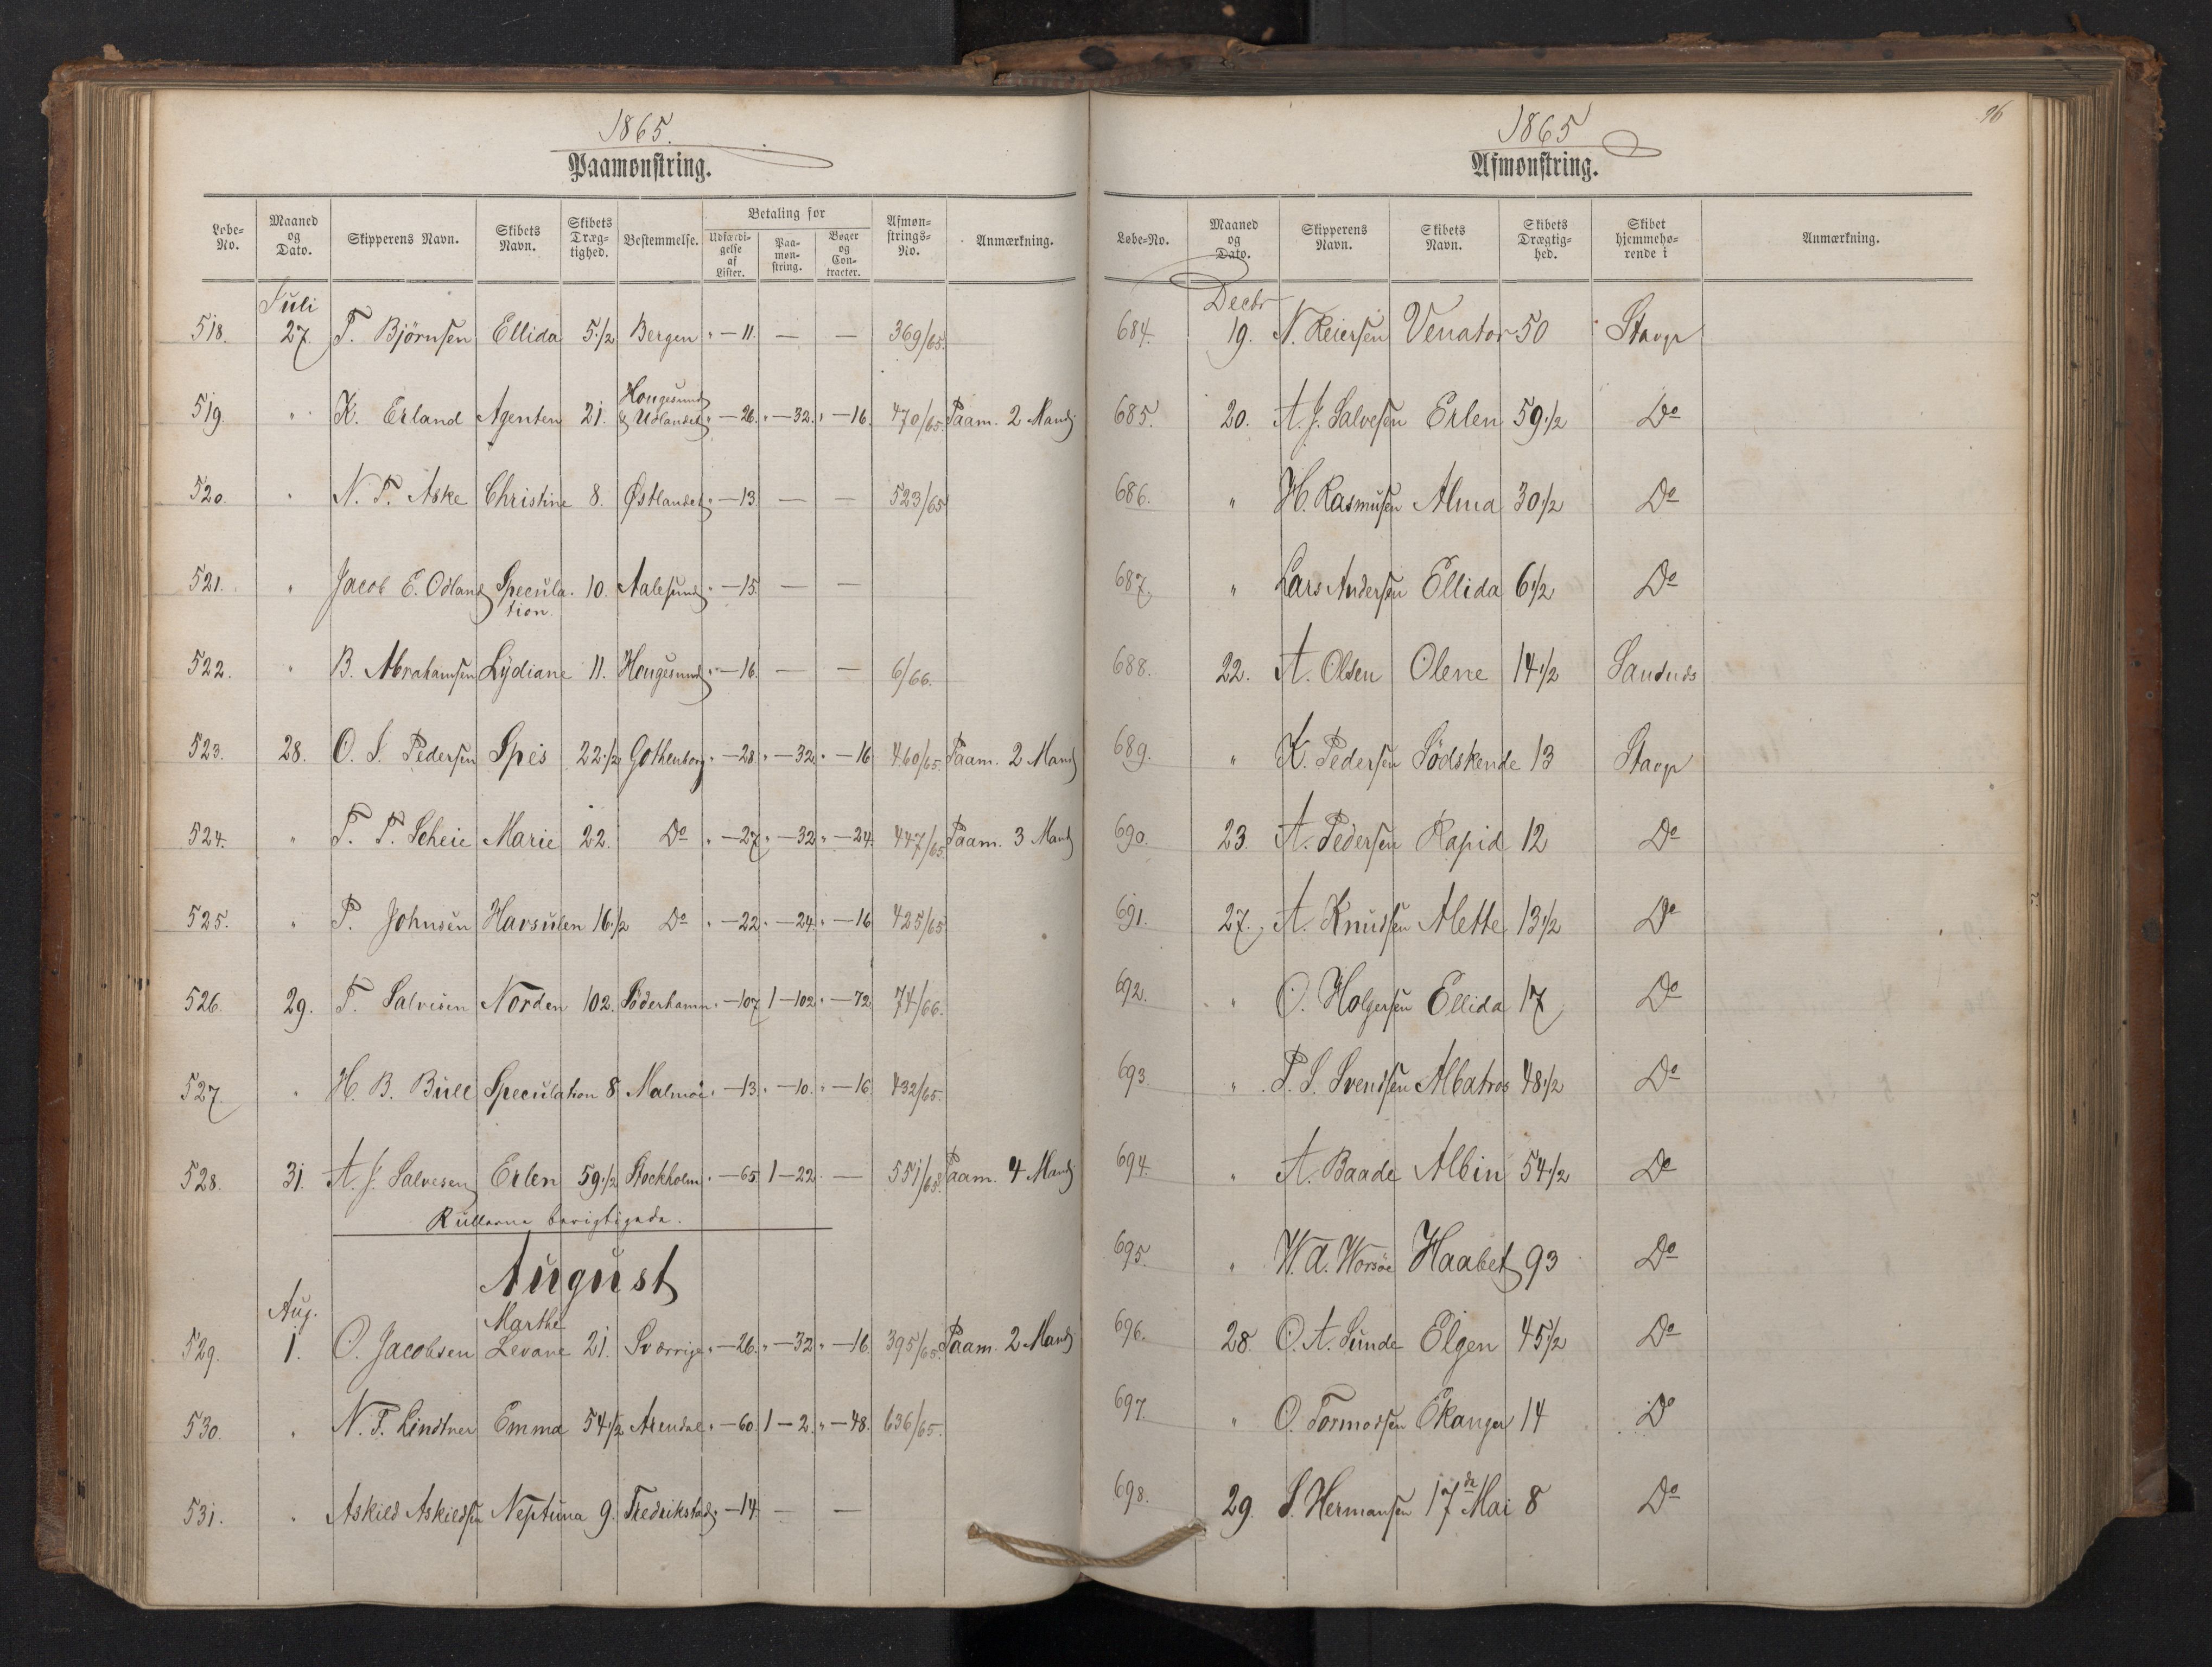 1865.
Paamønstring.
Løbe-No. Maaned og Dato. Skipperens Navn. Skibets Navn. Skibets Dræg-tighed. Bestemmelse. Betaling for Udfærdi-gelse af Lister. Paa-møn-string. Bøger og Con-tracter. Afmøn-strings-No. Anmærkning.
Juli
518. 27. T. Bjørnsen Ellida 5 1/2 Bergen " — 11. — — 369/65.
519. " K. Erland Agenten 21. Hougesund & Udlandet " — 26. " — 32. " — 16. 470/65. Paam. 2 Mand
520. " N. T. Aske Christine 8. Østlandet " — 13. — — 523/65
521. " Jacob E. Odland Specula-tion. 10. Aalesund " — 15. — —
522. " B. Abrahamsen Lydiane 11. Hougesund " — 16. — — 6/66.
523. 28. O. S. Pedersen Speis 22 1/2 Gothenborg " — 28. " — 32. " — 16 460/65. Paam. 2 Mand
524. " T. T. Scheie Marie 22. Do " — 27. " — 32 " — 24. 447/65 Paam. 3 Mand
525. " P. Johnsen Havsulen 16 1/2 Do " — 22. " — 24. " — 16 425/65
526. 29. T. Salvesen Norden 102. Söderhamn " — 107 1 — 102. " — 72. 74/66.
527. " H. B. Bull Speculation 8 Malmöe " — 13. " — 10. " — 16. 432/65.
528. 31. A. J. Salvesen Erlen 59 1/2 Stockholm " — 65. 1 — 22. — 551/65. Paam. 4 Mand
Rullerne berigtigede.
August
Aug.
529. 1. O. Jacobsen Marthe Levane 21. Sverrige " — 26. " — 32 " — 16. 395/65. Paam. 2 Mand
530. " N. T. Lindtner Emma 54 1/2 Arendal " — 60. 1 — 2. " — 48. 636/65.
531. " Askild Askildsen Neptuna 9. Fredrikstad " — 14. — —
96
1865
Afmønstring.
Løbe-No. Maaned og Dato. Skipperens Navn. Skibets Navn. Skibets Drægtig-hed. Skibet hjemmehø-rende i Anmærkning.
Decbr
684. 19. N. Reiersen Venator 50 Stavgr
685. 20. A. J. Salvesen Erlen 59 1/2 Do
686. " H. Rasmusen Alma 30 1/2 Do
687. " Lars Andersen Ellida 6 1/2 Do
688. 22. A. Olsen Olene 14 1/2 Sandnds
689. " K. Pedersen Södskende 13 Stavgr
690. 23. A. Pedersen Rapid 12 Do
691. 27. A. Knudsen Alette 13 1/2 Do
692. " O. Holgersen Ellida 17 Do
693. " P. S. Svendsen Albatros 48 1/2 Do
694. " A. Baade Albin 54 1/2 Do
695. " W. A. Worsöe Haabet 93 Do
696. 28. O. A. Sunde Elgen 45 1/2 Do
697. " O. Tormodsen Ekanger 14 Do
698. 29. S. Hermansen 17de Mai 8 Do